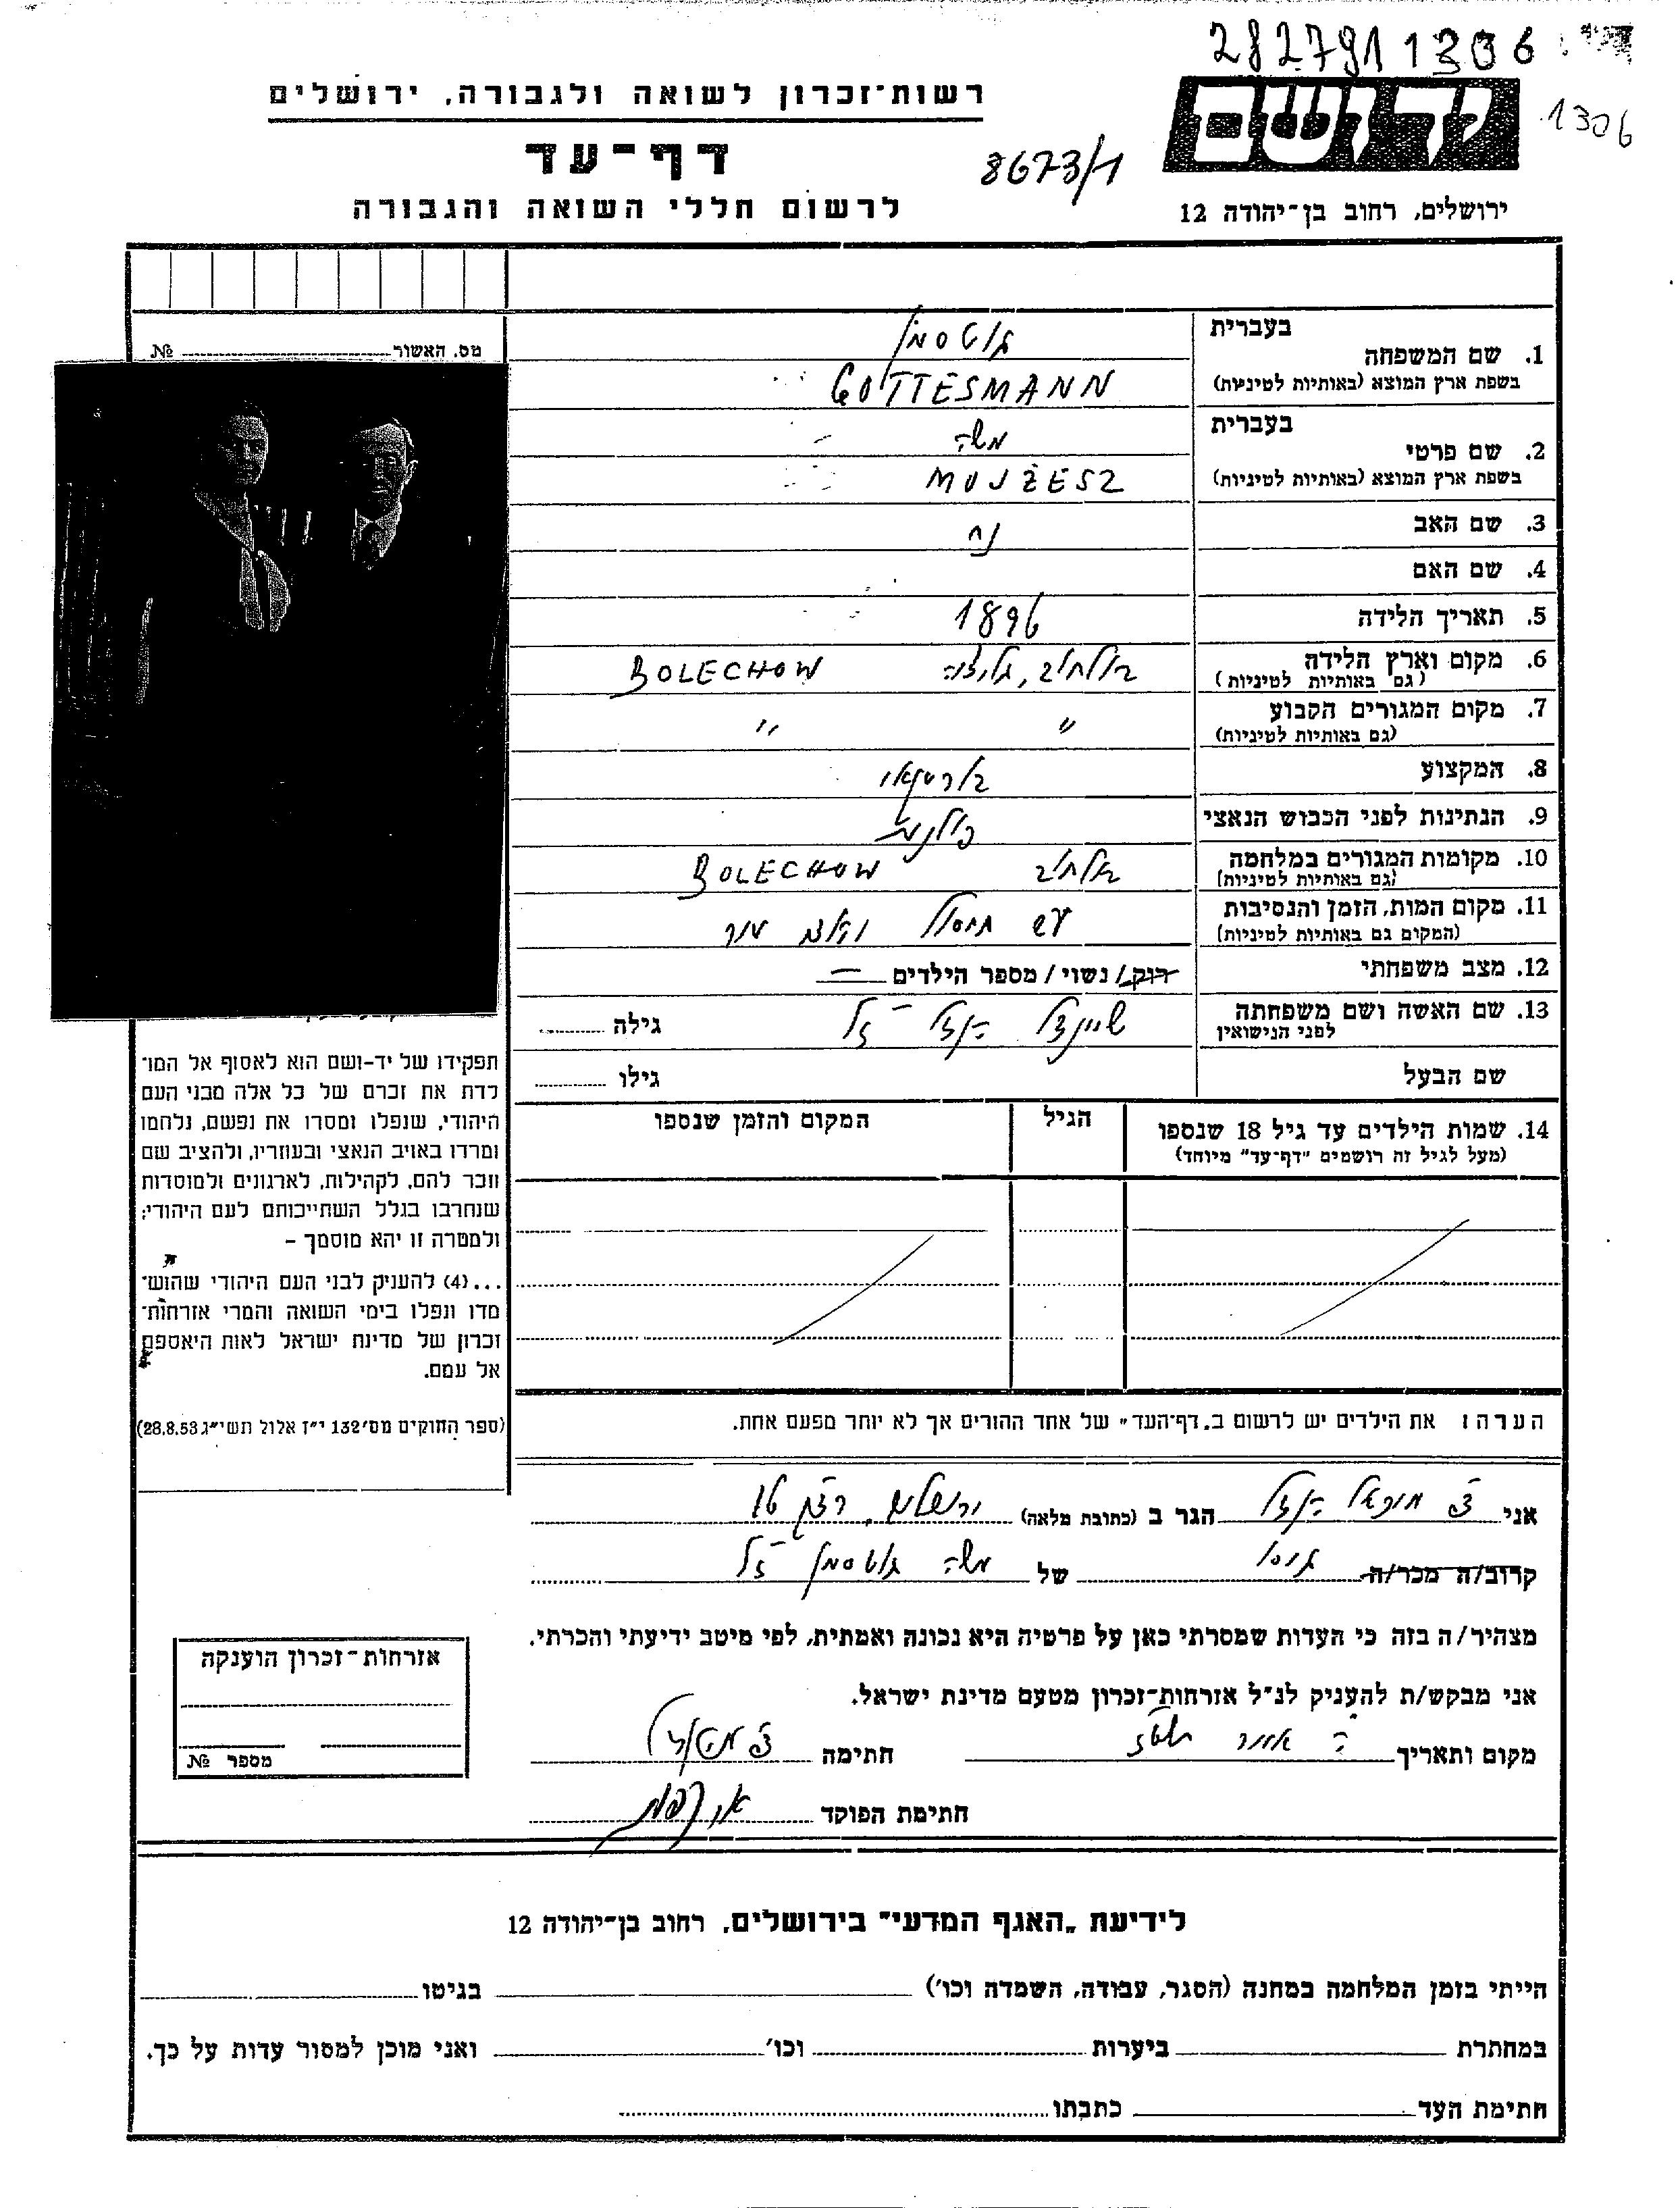 282791 1306
1306
רשות־זכרון לשואה ולגבורה, ירושלים
ידושם
דף־עד
8673/1
לרשום חללי השואה והגבורה
ירושלים, רחוב בן־יהודה 12
מס. האשור № 
1. שם המשפחה
בעברית גוטסמן
בשפת ארץ המוצא (באותיות לטיניות) GOTTESMANN
2. שם פרטי
בעברית משה
בשפת ארץ המוצא (באותיות לטיניות) MOJŻESZ
3. שם האב נח
4. שם האם
5. תאריך הלידה 1896
6. מקום וארץ הלידה בולחוב, גליציה BOLECHOW
(גם באותיות לטיניות)
7. מקום המגורים הקבוע " "
(גם באותיות לטיניות)
8. המקצוע
9. הנתינות לפני הכבוש הנאצי פולנית
10. מקומות המגורים במלחמה בולחוב BOLECHOW
(גם באותיות לטיניות)
11. מקום המות, הזמן והנסיבות
(המקום גם באותיות לטיניות)
12. מצב משפחתי רוק/ נשוי / מספר הילדים —
13. שם האשה ושם משפחתה שיינדל הנדל ז"ל גילה
לפני הנישואין
שם הבעל גילו
14. שמות הילדים עד גיל 18 שנספו הגיל המקום והזמן שנספו
(מעל לגיל זה רושמים "דף־עד" מיוחד)
תפקידו של יד-ושם הוא לאסוף אל המו־
לדת את זכרם של כל אלה מבני העם
היהודי, שנפלו ומסרו את נפשם, נלחמו
ומרדו באויב הנאצי ובעוזריו, ולהציב שם
וזכר להם, לקהילות, לארגונים ולמוסדות
שנחרבו בגלל השתייכותם לעם היהודי;
ולמטרה זו יהא מוסמך –
...(4) להעניק לבני העם היהודי שהוש־
מדו ונפלו בימי השואה והמרי אזרחות־
זכרון של מדינת ישראל לאות היאספם
אל עמם.
(ספר החוקים מס' 132 י"ז אלול תשי"ג 28.8.53)
הערה: את הילדים יש לרשום ב„דף־העד" של אחד ההורים אך לא יותר מפעם אחת.
אני הנדל הגר ב (כתובת מלאה) ירושלים,
קרוב/ה מכר/ה גיסו של משה גוטסמן ז"ל
מצהיר/ה בזה כי העדות שמסרתי כאן על פרטיה היא נכונה ואמתית, לפי מיטב ידיעתי והכרתי.
אני מבקש/ת להעניק לנ"ל אזרחות־זכרון מטעם מדינת ישראל.
מקום ותאריך חתימה
חתימת הפוקד
אזרחות־זכרון הוענקה
מספר №
לידיעת „האגף המדעי" בירושלים, רחוב בן־יהודה 12
הייתי בזמן המלחמה במחנה (הסגר, עבודה, השמדה וכו') בגיטו
במחתרת ביערות וכו' ואני מוכן למסור עדות על כך.
חתימת העד כתבתו